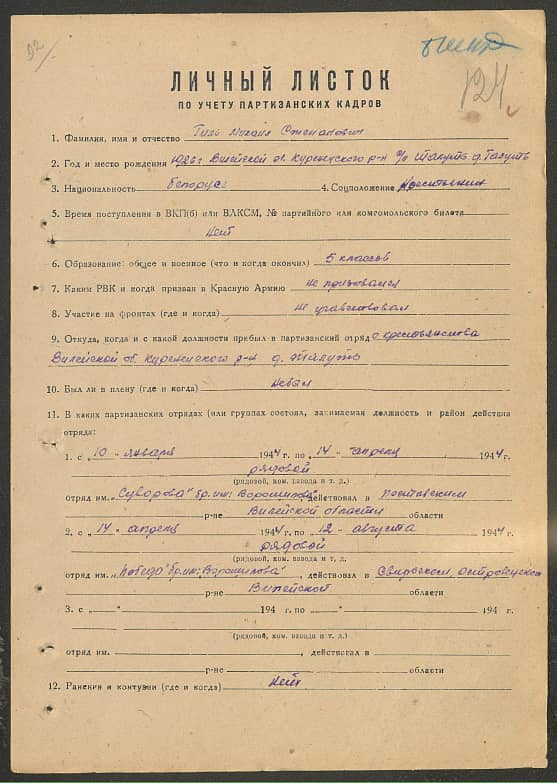 92
124
ЛИЧНЫЙ ЛИСТОК
ПО УЧЕТУ ПАРТИЗАНСКИХ КАДРОВ
1. Фамилия, имя и отчество Гиль Михаил Степанович
2. Год и место рождения 1926 г Вилейской об. Куренецского р-н с/с Талуть д. Талуть
3. Национальность белорус 4. Соцположение Крестьянин
5. Время поступления в ВКП(б) или ВЛКСМ, № партийного или комсомольского билета
Нет
6. Образование: общее и военное (что и когда окончил) 5 классов
7. Каким РВК и когда призван в Красную Армию Не призывался
8. Участие на фронтах (где и когда) Не участвовал
9. Откуда, когда и с какой должности прибыл в партизанский отряд с крестьянства
Вилейской об. Куренецкого р-н д. Талуть
10. Был ли в плену (где и когда) Небыл
11. В каких партизанских отрядах (или группах состоял, занимаемая должность и район действия
отряда:
1. с „10 " января 1944 г. по „14 " апреля 1944 г.
рядовой
(рядовой, ком. взвода и т. д.)
отряд им. „Суворова" бр. им: Ворошилова, действовал в поставским
р-не Вилейской области области
2. с „14 " апреля 1944 г. по „12 " августа 1944 г.
рядовой
(рядовой, ком. взвода и т. д.
отряд им. „Победа" бр. им: Ворошилова", действовал в Свирьском, островецком
р-не Вилейской области
3. с „ " 194 г. по „ " 194 г.
(рядовой, ком. взвода и т. д.)
отряд им. , действовал в
р-не области
12. Ранения и контузии (где и когда) Нет